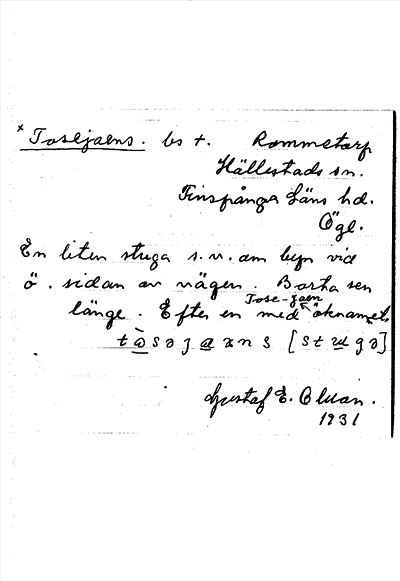 x Tosejaens. bs t. Rommetorp
Hällestads sn.
Finspånga Läns hd.
Ögl.
En liten stuga s.v. om byn vid
ö. sidan av vägen. Borta sen
länge. Efter en med Tose-Jaen öknamnet.
[stugə]
Gustaf E. Olson.
1931